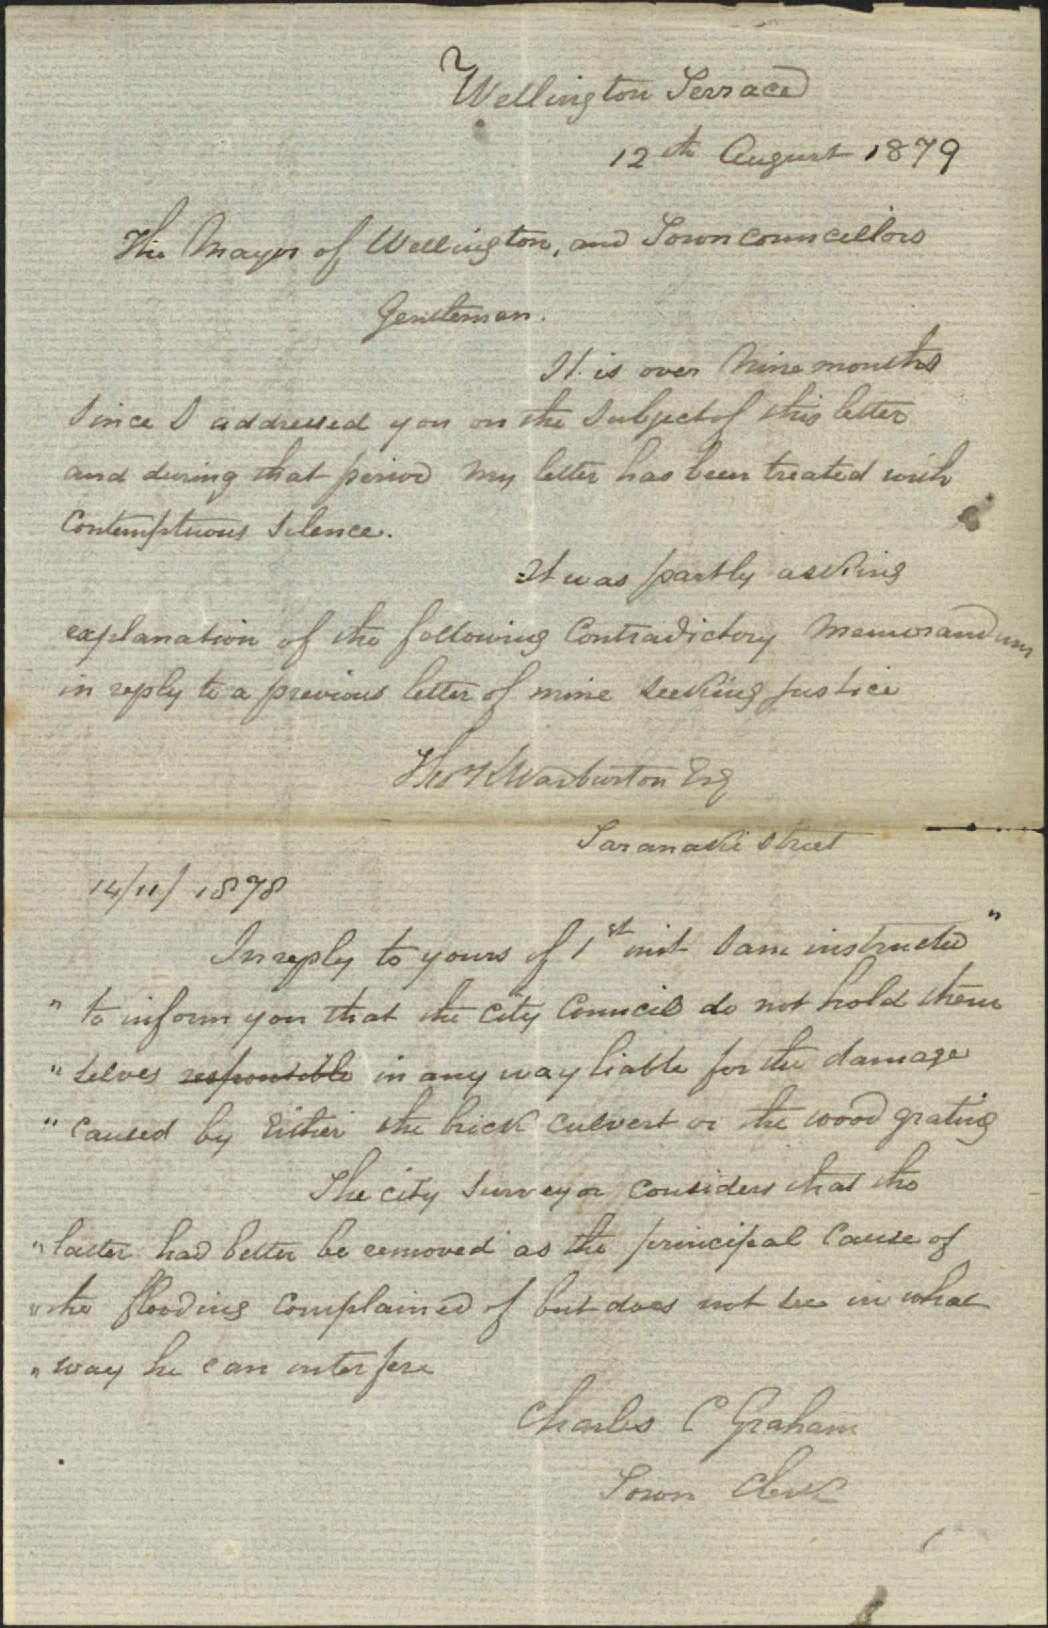 Wellington Terrace
12th August 1879
The Mayor of Wellington, and Town Councillors
Gentlemen.
It is over Nine months
Since I addressed you on the Subject of this letter
and during that period My letter has been treated with
Contemptuous Silence.
It was partly asking
explanation of the following Contradictory Memorandum
in reply to a previous letter of mine seeking justice
Warburton Esq
Taranaki Street
14/11/1878
In reply to yours of 1st inst I am instructed "
" to inform you that the City Council do not hold them
" selves responsible in any way liable for the damage
" Caused by Either the brick culvert or the wood grating
The city Surveyor Considers that the
" latter had better be removed as the principal Cause of
" the flooding Complained of but does not see in what
" way he can interfere
Charles C Graham
Town Clerk